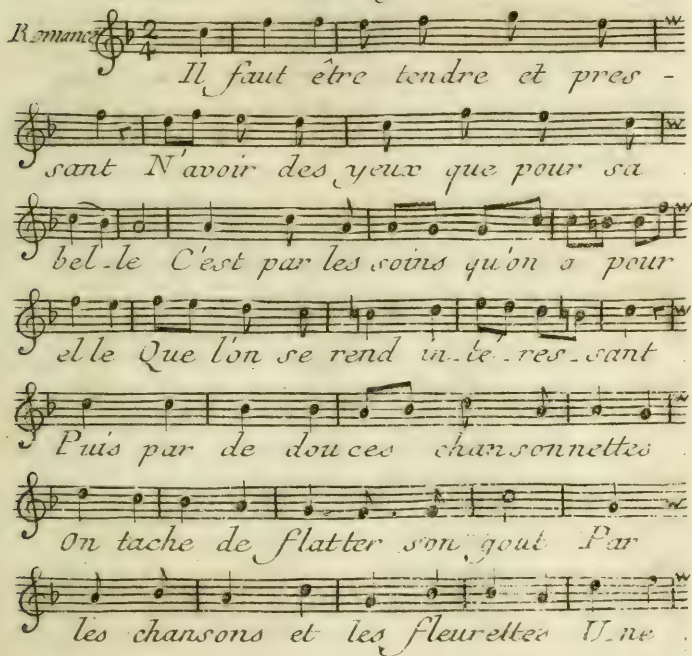 Romance
Il faut être tendre et pres-
sant N'avoir des yeux que pour sa
bel-le C'est par les soins qu'on a pour
elle Que l'on se rend in-té-res-sant
Puis par de douces chansonnettes
On tache de flatter son gout Par
les chansons et les fleurettes U-ne